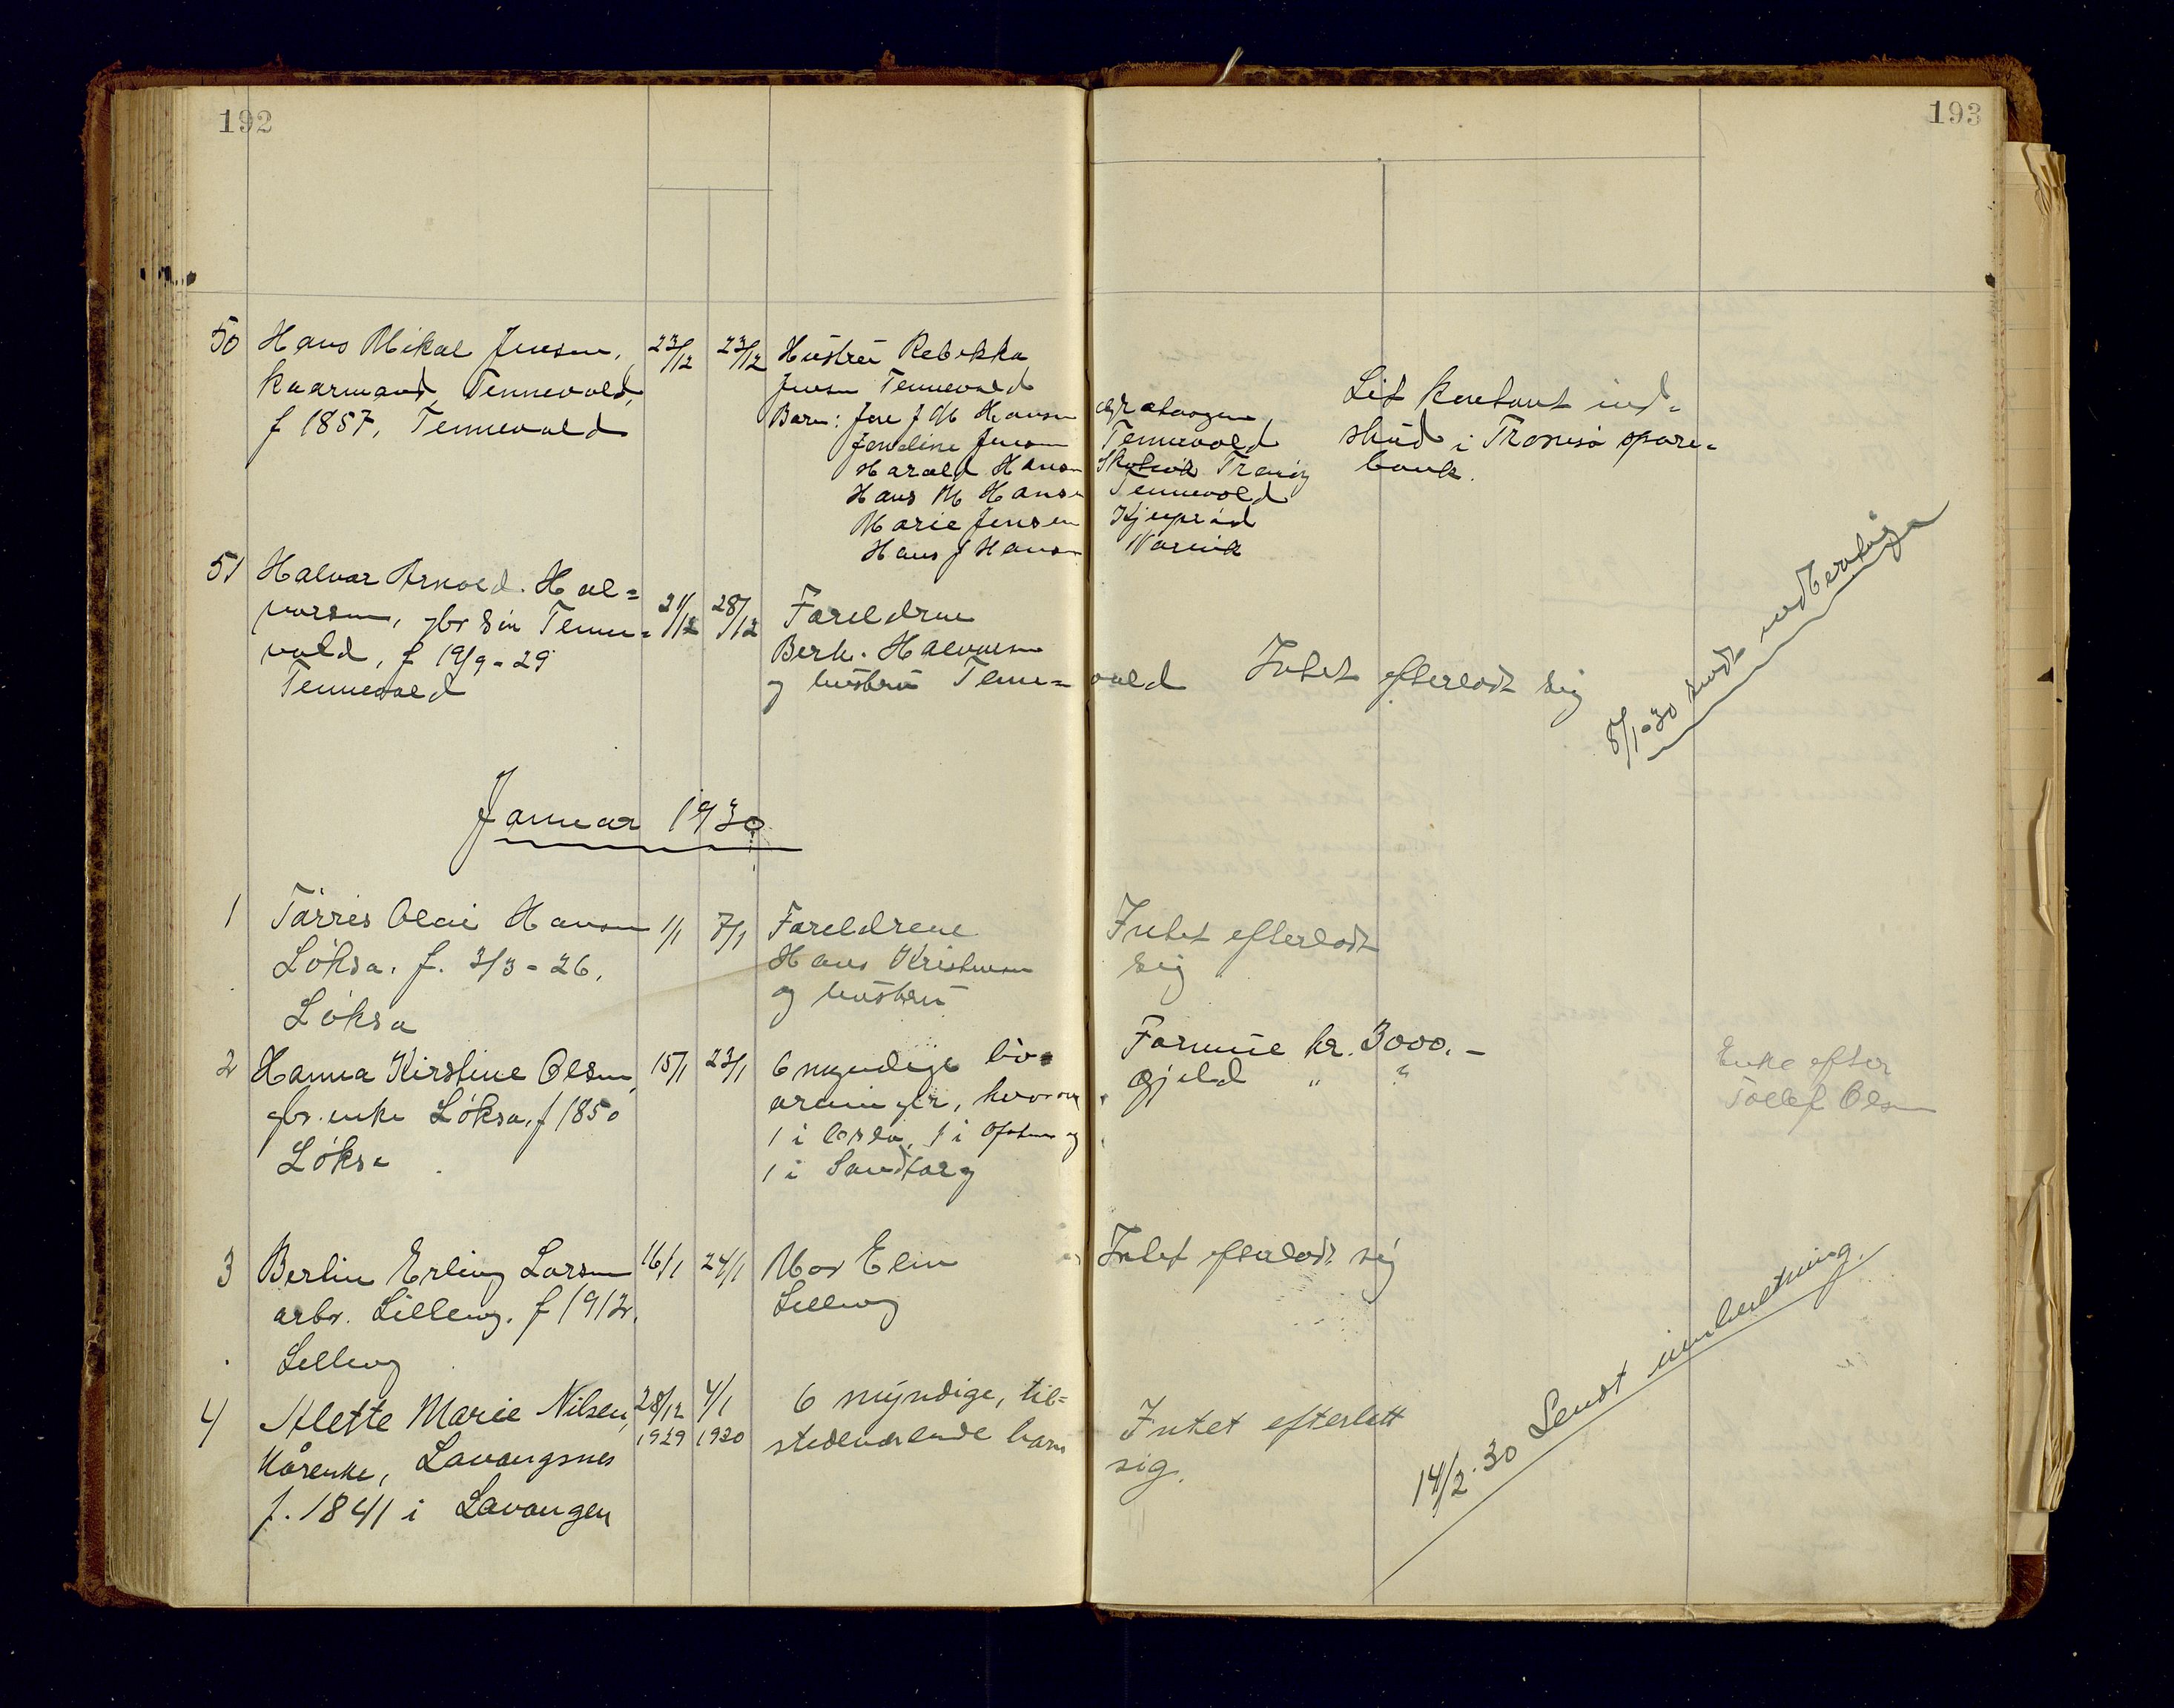 192
193
50 Hans Mikal Jensen, 23/12 23/12 Hustru Rebekka
kaarmand, Tennevold, Jensen Tennevold
f 1857, Tennevold
Barn: Jens J M Hansen
Jendine Jensen Tennevold
Harald Hansen Tranøy
Hans M Hansen Tennevold
Marie Jensen
Hans J Hansen Narvik
Lit kontant ind-
skud i Tromsø spare-
bank.
51 Halvar Arnold Hal=
vorsen, gbr søn Tenne= 21/12 28/12 Foreldrene
vold, f 19/9-29 Berh. Halvorsen
Tennevold og hustru Tenne=vold Intet efterlodt sig
8/1-30 sendt indberetnign
Januar 1930
1 Tørres Olai Hansen 1/1 7/1 Foreldrene Intet efterlodt
Løksa. f. 3/3-26. Hans Kristensen sig
Løksa og hustru
2 Hanna Kirstine Olsen, 15/1 23/1 6 myndige livs- Formue kr. 3000.-
gbr. enke Løksa, f 1850 arvinger, hvorav gjeld " "
Løksa 1 i Oslo, 1 i Ofoten og
1 i Sandtorg
Enke efter
Tollef Olsen
3 Berlin Erling Larsen 16/1 24/1 Mor Elen Intet efterlodt sig
arbr. Lilleng. f 1912. Lilleng
Lilleng
4 Alette Marie Nilsen, 28/12 4/1 6 myndige, til=
Kårenke, Lavangsnes 1929 1930 stedeværende barn
f. 1841 i Lavangen
Intet efterlatt
sig.
14/2.30 Sendt innberetning.